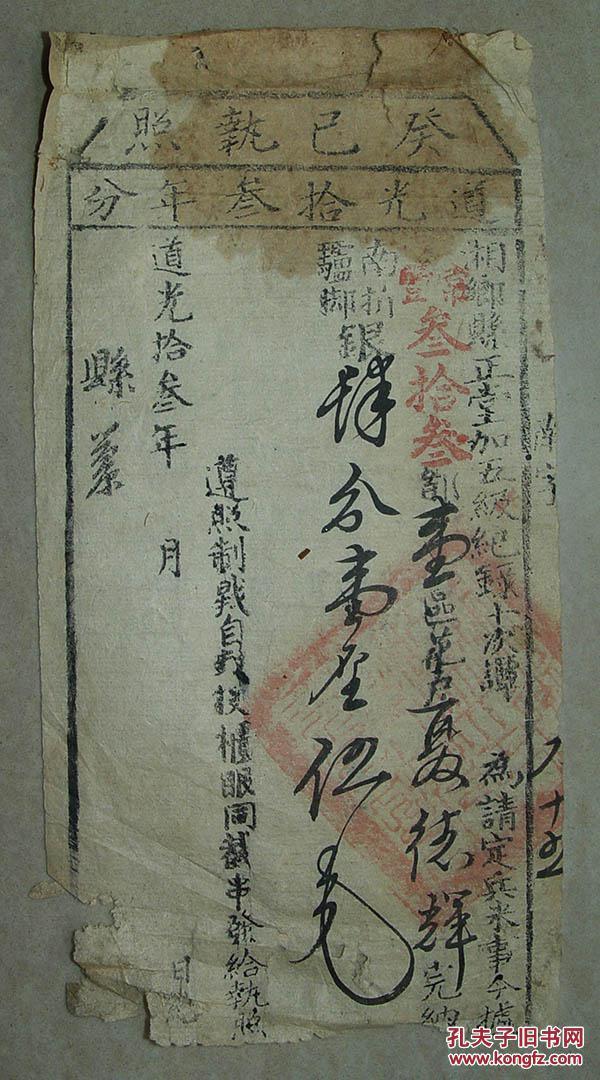 癸巳執照
道光拾叁年分
湘鄉縣正堂加五級紀錄十次 為請定兵米事今據
叁拾叁都壹區花户夏德輝完納
南折
驢脚銀肆分壹厘伍毛
遵照制戥自封投櫃眼同截串發給執照
道光拾叁年 月 日
縣 業
孔夫子旧书网
www.kongfz.com